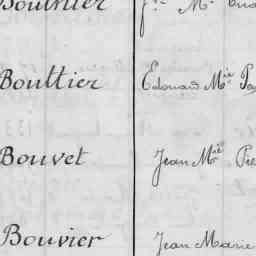 Bouttier Edouard Mie
Bouvet Jean Mie
Bouvier Jean Marie